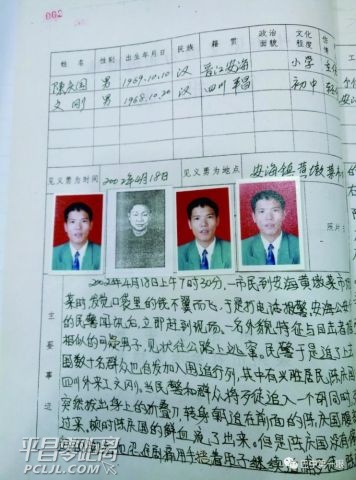 002
姓名 性别 出生年月日 民族 籍贯 政治面貌 文化程度
陈庆国 男 1969.10.10 汉 晋江安海 小学
文刚 男 1968.10.20 汉 四川平昌 初中
见义勇为时间 2002年4月18日 见义勇为地点 安海镇黄墩菜市
照片
主要事迹
2002年4月18日上午7时30分,一市民到安海黄墩菜市
菜时发觉口袋里的钱不翼而飞,于是打电话报警,安海公安
的民警闻讯后,立即赶到现场,一名外貌特征与目击者描
相似的可疑男子,见状往公路上逃窜。民警于是追了上去
围数十名群众也自发加入围追行列,其中有兴胜居民陈庆国
四川外来工文刚。当民警和群众将歹徒追入一个胡同时,歹
突然拔出身上的折叠刀转身朝追在前面的陈庆国腹
过来,顿时陈庆国的鲜血流了出来。但是陈庆国没有
用手捂着肚子继续
平昌零距离
PCLJL.COM